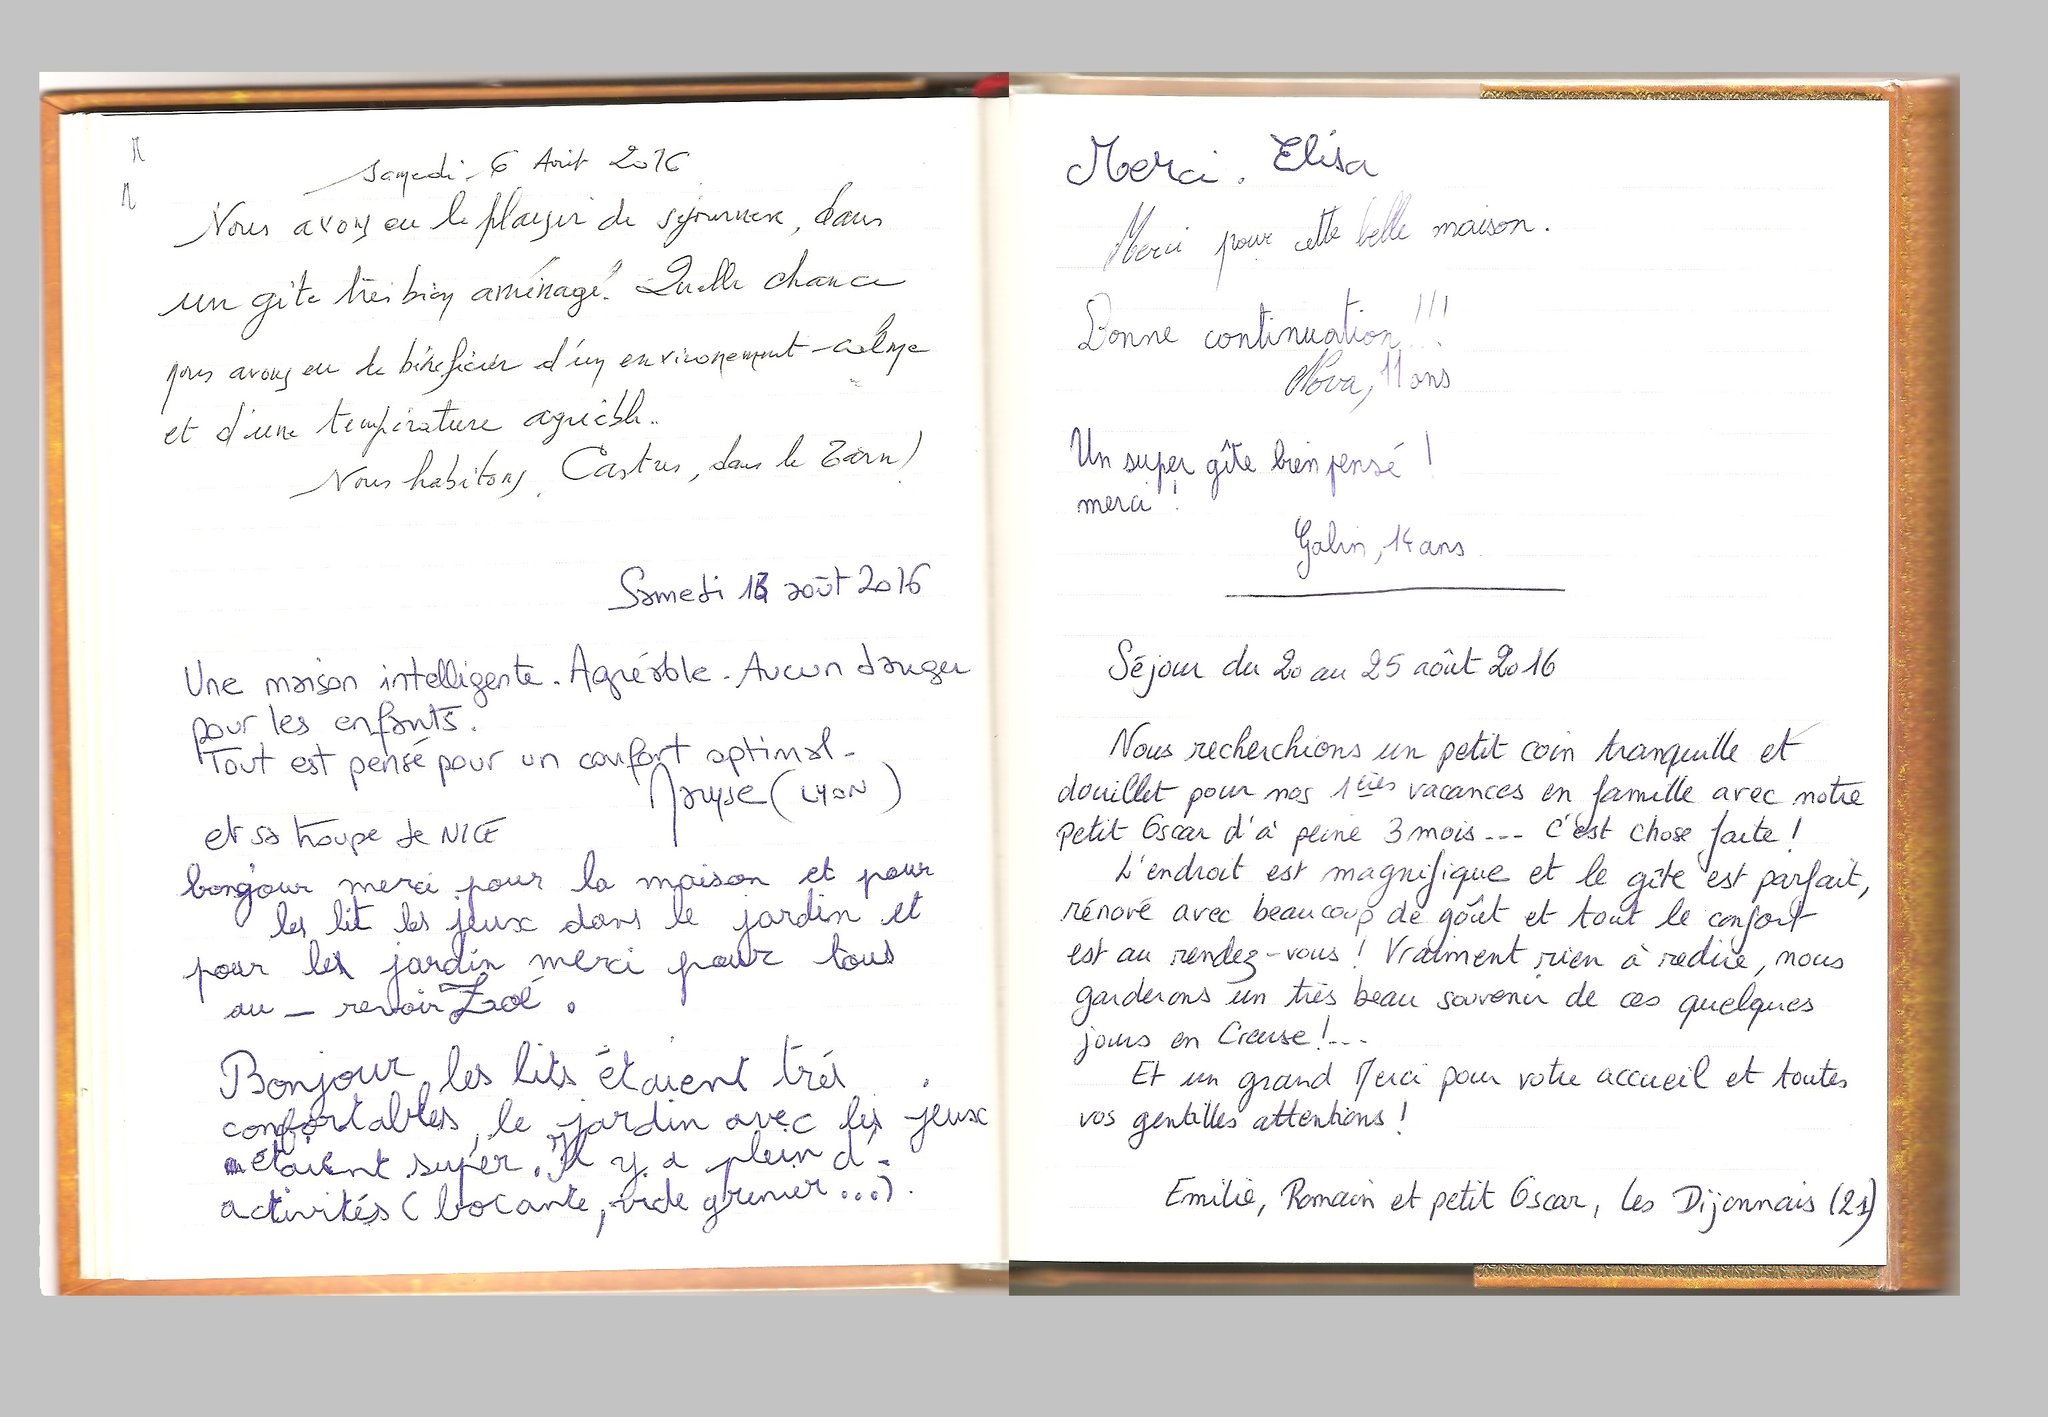 Samedi 6 Août 2016
Nous avons eu le plaisir de séjourner, dans
un gîte très bien aménagé. Quelle chance
nous avons eu de bénéficier d'un environement calme
et d'une température agréable..
Nous habitons, Castres, dans le Tarn)
Samedi 13 août 2016
Une maison intelligente. Agréable. Aucun danger
pour les enfants.
Tout est pensé pour un confort optimal.
Maryse (LYON)
et sa troupe de NICE
bonjour merci pour la maison et pour
les lit les jeux dans le jardin et
pour les jardin merci pour tous
au - revoir Zoé.
Bonjour les lits étaient trés
confortables, le jardin avec les jeux
étaient super. Il y a plein d-
activités (bocante, vide grenier...).
Merci. Elisa
Merci pour cette belle maison.
Bonne continuation!!!
Nova, 11 ans
Un super gîte bien pensé !
merci !
Galin, 14 ans
Séjour du 20 au 25 août 2016
Nous recherchions un petit coin tranquille et
douillet pour nos 1ères vacances en famille avec notre
petit Oscar d'à peine 3 mois... c'est chose faite !
L'endroit est magnifique et le gîte est parfait,
rénové avec beaucoup de goût et tout le confort
est au rendez-vous ! Vraiment rien à redire, nous
garderons un très beau souvenir de ces quelques
jours en Creuse !...
Et un grand Merci pour votre accueil et toutes
vos gentilles attentions !
Emilie, Romain et petit Oscar, les Dijonnais (21)